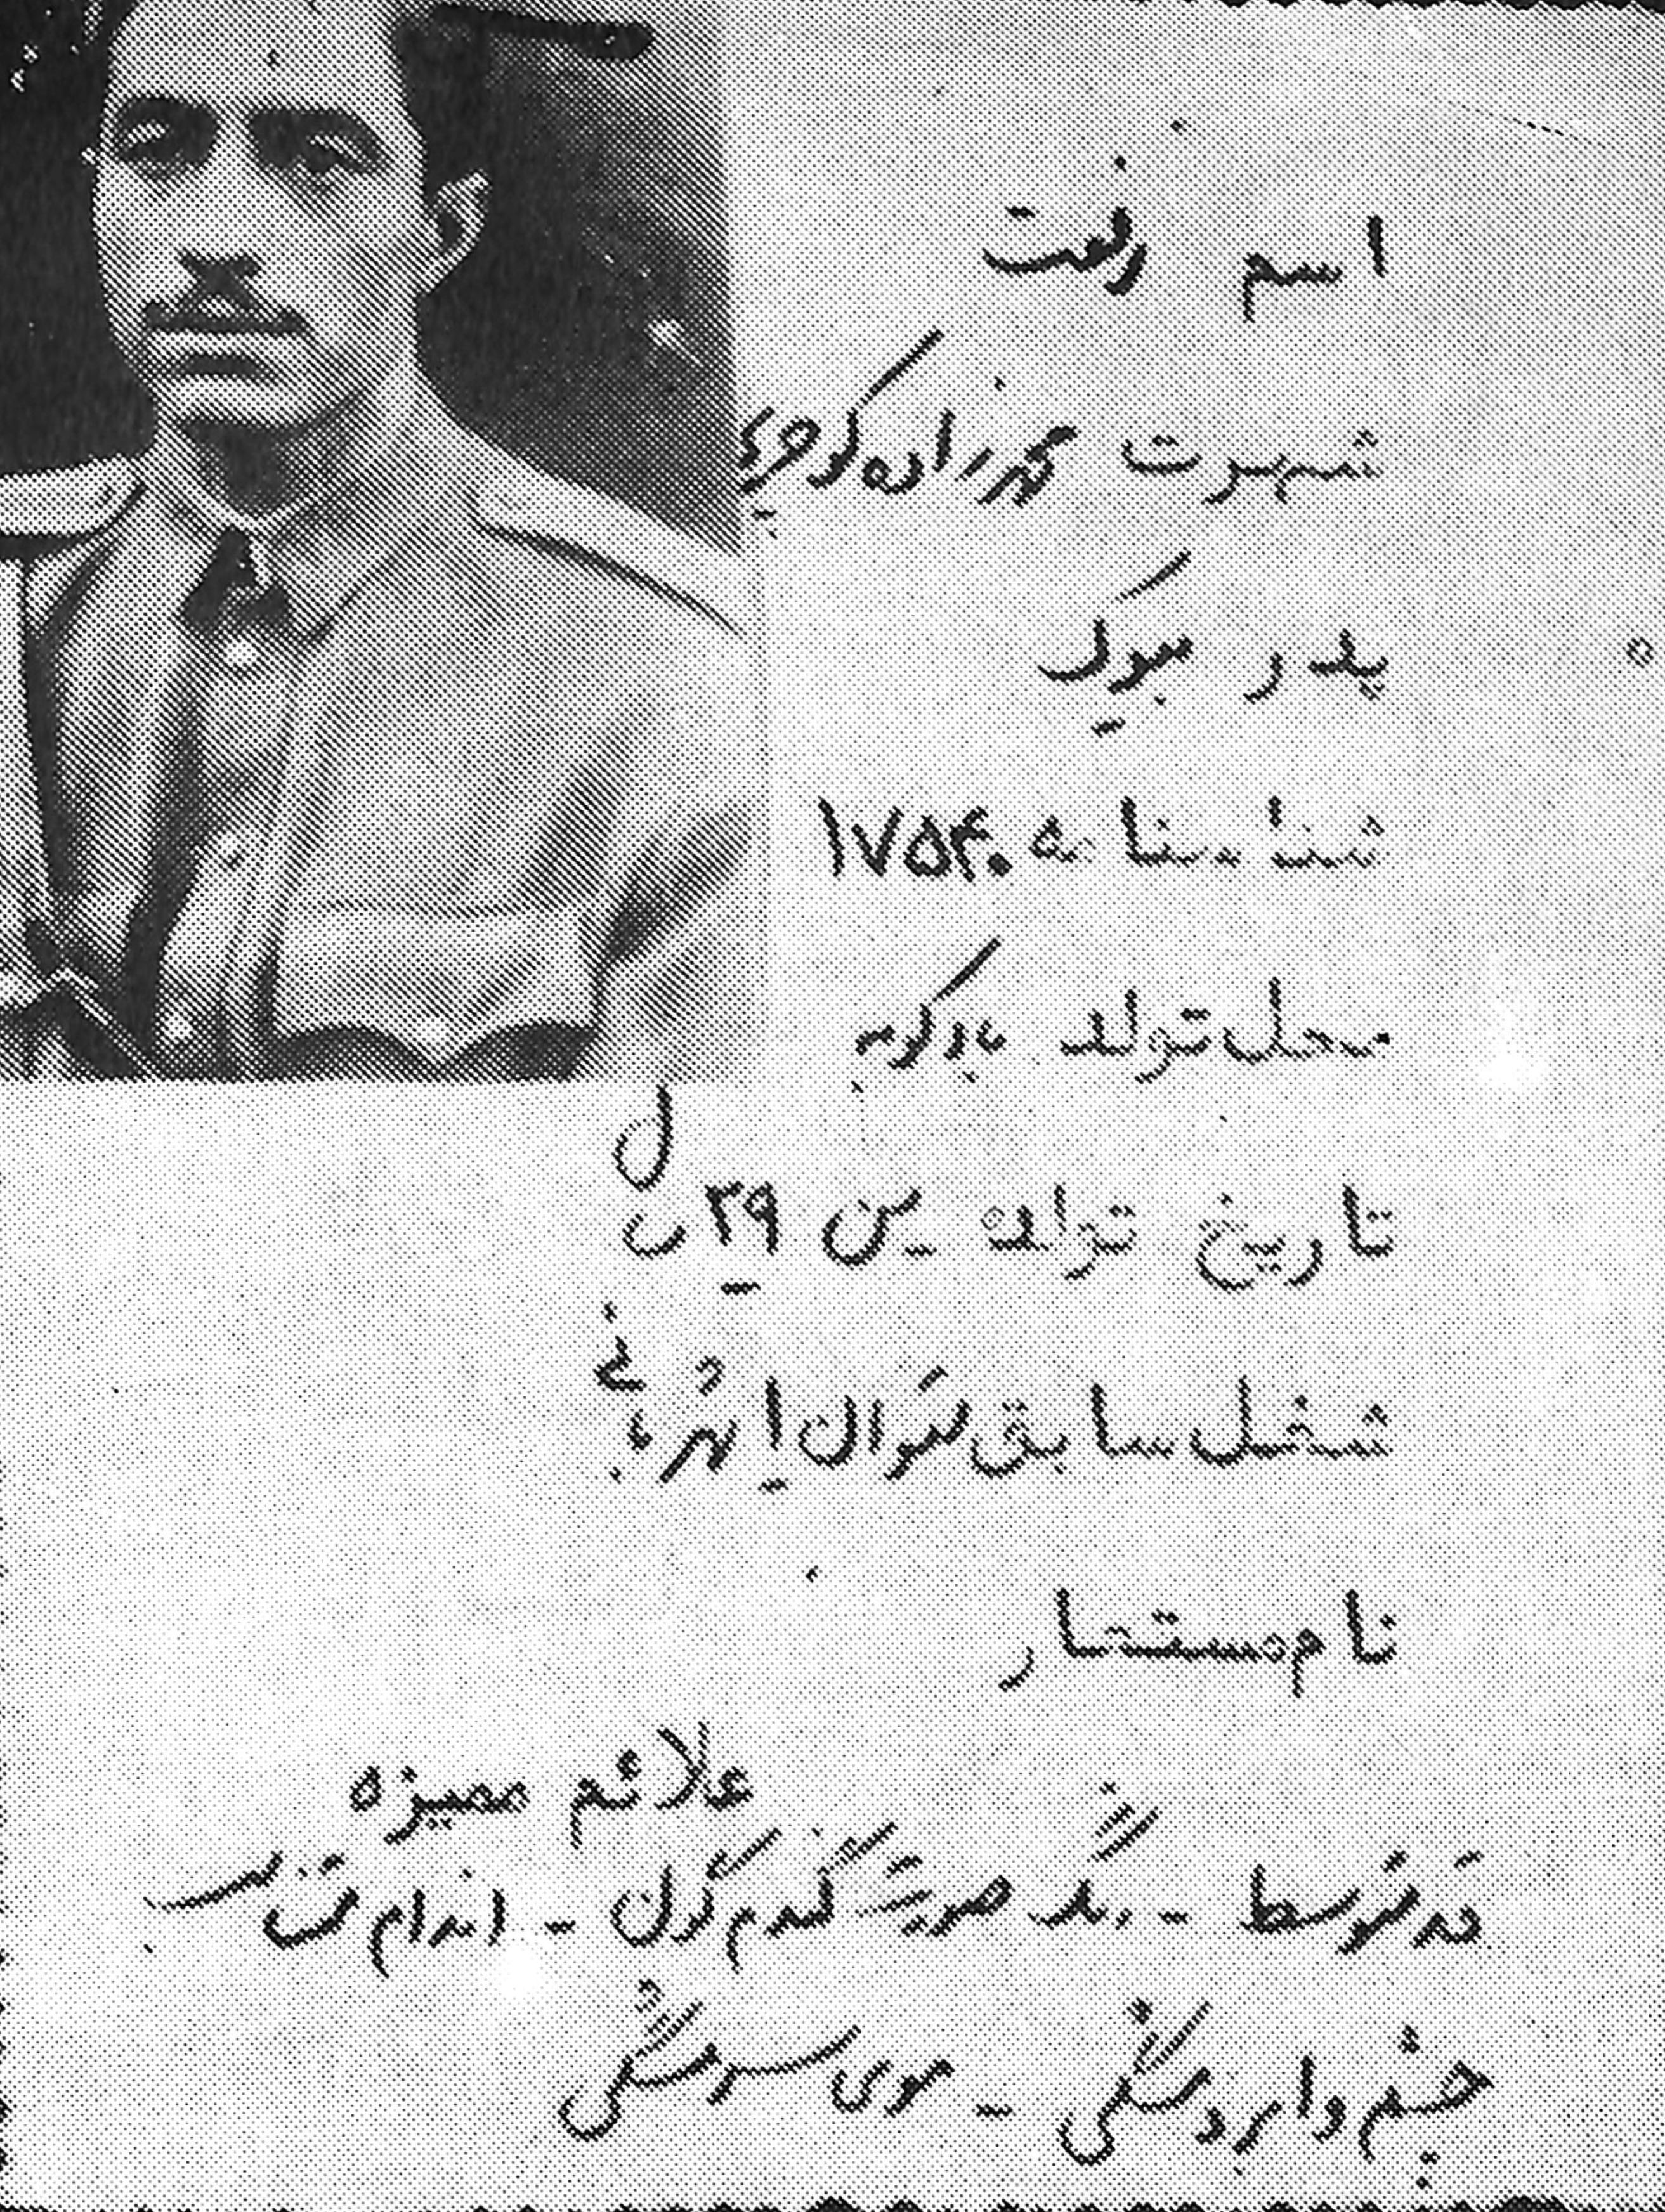 اسم رفعت
شهرت محمدزاده کوچری
پدر بیوک
شناسنامه ۱۷۵۴۰
محل تولد بادکوبه
تاریخ تولد سن ۳۹ سال
شغل سابق ستوان ۱ شهربانی
نام مستعار
علائم ممیزه
قد متوسط - رنگ صورت گندم گون - اندام متناسب
چشم و ابرو مشگی - موی سر مشگی